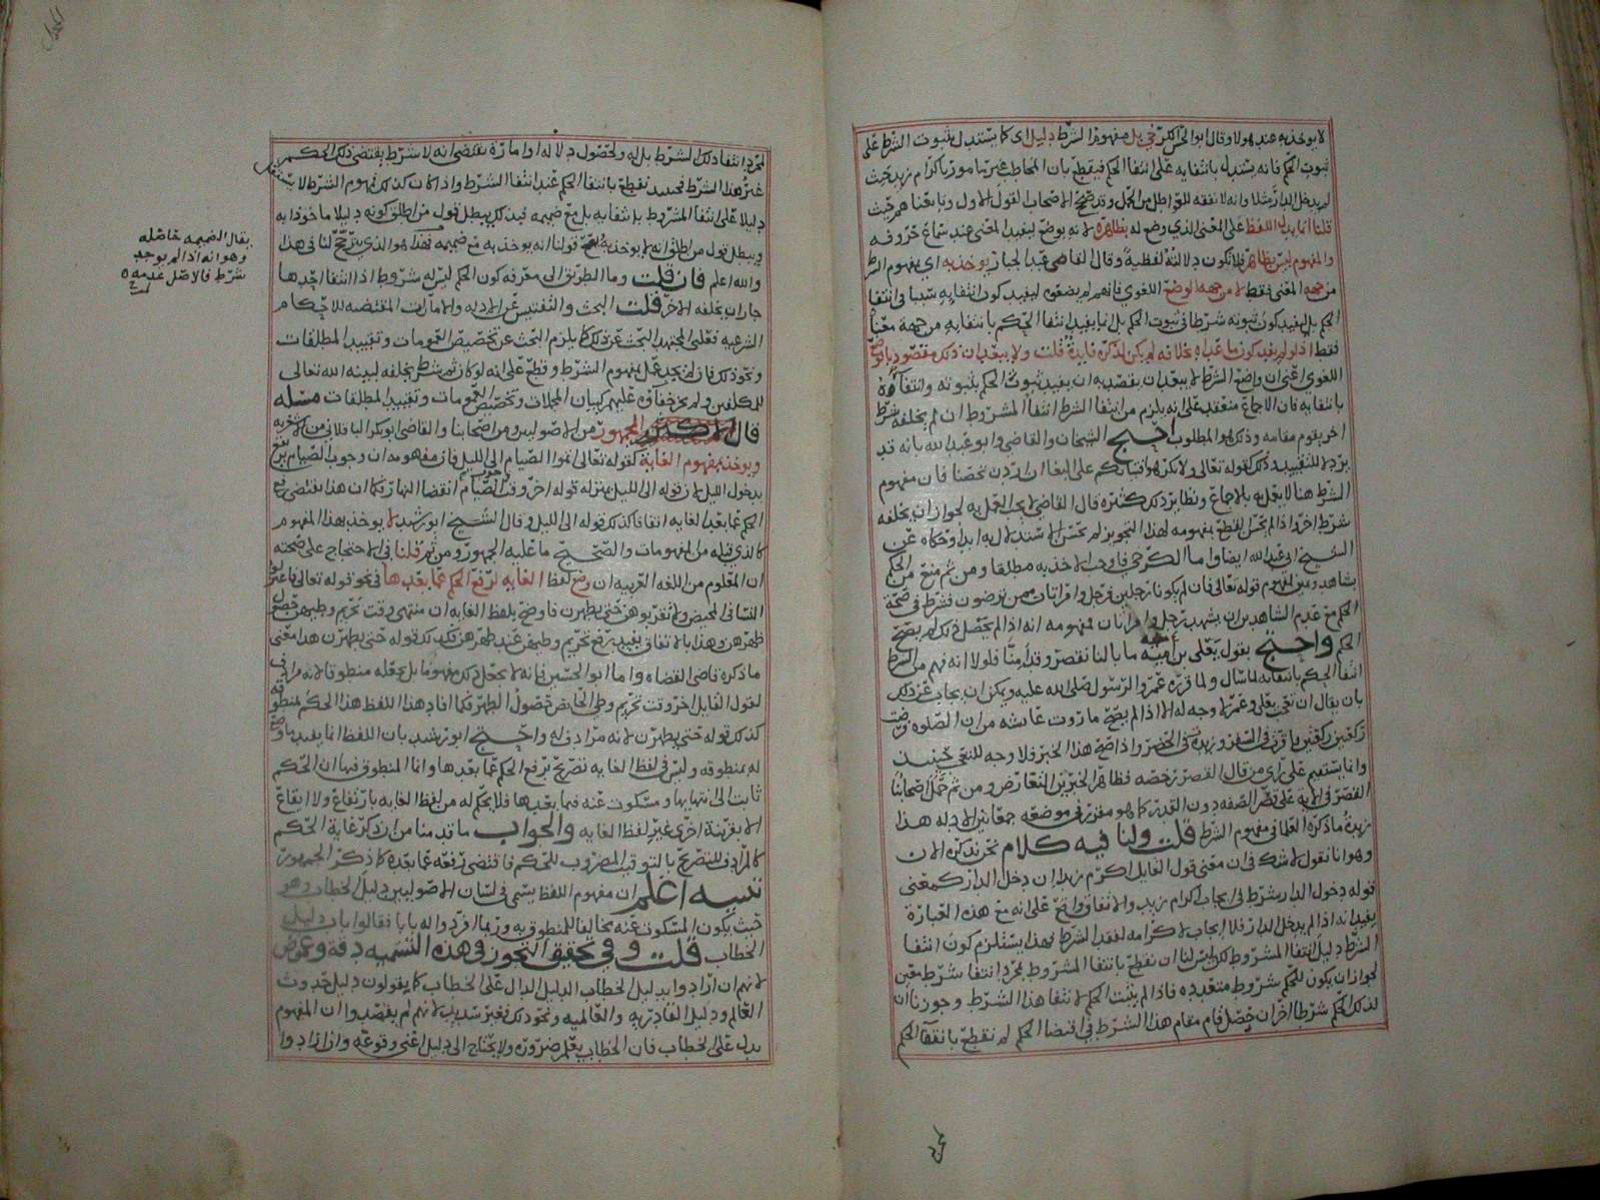 لا يوخذ به عند هولا وقال ابو الحسن الكرخي بل مفهوم الشرط دليل اي كما يستدل بثبوت الشرط على
ثبوت الحكم فانه يستدل بانتفايه على انتفا الحكم فيقطع بان المخاطب غير مامور باكرام زيد حيث
لم يدخل الدار مثلا وانه لا نفقه للحوامل وقد صحح الاصحاب القول الاول
قلنا انما يدل اللفظ على المعنى الذي وضع له بظاهره لانه يوضع ليفيد المعنى عند سماع حروفه
والمفهوم ليس بظاهر فلا تكون دلالته لفظية وقال القاضي عبد الجبار يوخذ به اي بمفهوم الشرط
من جهة المعنى فقط لا من جهة الوضع اللغوي فانهم لم يضعوه ليفيد كون انتفايه سببا في انتفا
الحكم بل ليفيد كون ثبوته شرطا في ثبوت الحكم بل انما يفيد انتفا الحكم بانتفايه من جهة معناه
فقط اذ لو لم يفد كون ما عداه بخلافه لم يكن لذكره فايدة قلت ولا يبعد ان ذلك مقصود بالوضع
اللغوي اعني ان واضع الشرط لا يبعد ان يقصد به ان يفيد ثبوت الحكم بثبوته وانتفاوه
بانتفايه فان الاجماع منعقد على انه يلزم من انتفا الشرط انتفا المشروط ان لم يخلفه شرط
اخر يقوم مقامه وذلك هو المطلوب احتج الشيخان والقاضي وابو عبد الله بانه قد
يرد لا للتقييد وذلك كقوله تعالى ولا تكرهوا فتياتكم على البغا ان اردن تحصنا فان مفهوم
الشرط هنا لا يعمل به بالاجماع ونظاير ذلك كثيره قال القاضي لا يجب العمل به لجواز ان يخلفه
شرط اخر واذا لم يحسن القطع بمفهومه لهذا التجويز لم يحسن الاستدلال به ابدا وحكاه عن
الشيخ ابي عبد الله ايضا واما الكرخي فاوجب الاخذ به مطلقا ومن ثم منع من الحكم
بشاهد ويمين لمفهوم قوله تعالى فان لم يكونا رجلين فرجل وامراتان ممن ترضون فشرط في صحة
الحكم مع عدم الشاهدين ان يشهد رجل وامراتان فمفهومه انه اذا لم يحصل ذلك لم يصح
الحكم واحتج بقول يعلى بن أمية ما بالنا نقصر وقد أمنا فلولا انه فهم من الشرط
انتفا الحكم بانتفايه لما سال ولما قرره عمر والرسول صلى الله عليه ويمكن ان يجاب عن ذلك
بان يقال ان تعجب يعلى وعمر لا وجه له الا اذا لم يصح ما روت عايشه من ان الصلوه فرضت
ركعتين ركعتين فاقرت في السفر وزيدت في الحضر واذا صح هذا الخبر فلا وجه للتعجب حينيذ
وانما يستقيم على راي من قال القصر رخصه فظاهر الخبرين التعارض ومن ثم حمل اصحابنا
القصر في الاية على قصر الصفه دون العدد كما هو مقرر في موضعه جمعا بين الادله هذا
زبدة ما ذكره العلما في مفهوم الشرط قلت ولنا فيه كلام نحن نذكره الان
وهو انا نقول لا شك في ان معنى قول القايل اكرم زيدا ان دخل الدار كمعنى
قوله دخول الدار شرط في ايجاب اكرام زيد والاتفاق واقع على انه مع هذه العبارة
يفيد انه اذا لم يدخل الدار فلا ايجاب لاكرامه لفقد الشرط فهذا يستلزم كون انتفا
الشرط دليل انتفا المشروط لكن ليس لنا ان نقطع بانتفا المشروط لمجرد انتفا شرط معين
لجواز ان يكون للحكم شروط متعدده فاذا لم يثبت الحكم لانتفا هذا الشرط وجوزنا ان
لذلك الحكم شرطا اخر ان حصل قام مقام هذا الشرط في اقتضا الحكم لم نقطع بانتفا الحكم
لمجرد انتفا ذلك الشرط بل له ولحصول دلاله او امارة تقتضي انه لا شرط يقتضي ذلك الحكم
غير هذا الشرط فحينيذ نقطع بانتفا الحكم عند انتفا الشرط واذا كان كذلك فمفهوم الشرط لا يستقل
دليلا على انتفا المشروط بانتفايه بل مع ضميمه فبذلك يبطل قول من اطلق كونه دليلا ماخوذا به
ويبطل قول من اطلق انه لا يوخذ به وصح قولنا انه يوخذ به مع ضميمه فهذا هو الذي يترجح لنا في هذا
والله اعلم فان قلت وما الطريق الى معرفه كون الحكم ليس له شروط اذا انتفا احدها
جاز ان يخلفه الاخر قلت البحث والتفتيش عن الادله والامارات المقتضيه للاحكام
الشرعيه فعلى المجتهد البحث عن ذلك كما يلزم البحث عن تخصيص العمومات وتقييد المطلقات
ونحو ذلك فان لم يجد عمل بمفهوم الشرط وقطع على انه لو كان ثم شرط يخلفه لبينه الله تعالى
للمكلفين ولم يخف عليهم كبيان المجملات وتخصيص العمومات وتقييد المطلقات مسله
قال الجمهور من الاصوليين من اصحابنا والقاضي ابو بكر الباقلاني من الاشعريه
ويوخذ بمفهوم الغاية كقوله تعالى اتموا الصيام الى الليل فان مفهومه ان وجوب الصيام يرتفع
بدخول الليل لان قوله الى الليل بمنزله قوله اخر وقت الصيام انقضا النهار فكما ان هذا يقتضي رفع
الحكم عما بعد الغايه اتفاقا كذلك قوله الى الليل وقال الشيخ ابو رشيد لا يوخذ بهذا المفهوم
كالذي قبله من المفهومات والصحيح ما عليه الجمهور ومن ثم قلنا في الاحتجاج على صحته
ان المعلوم من اللغه العربيه ان وضع لفظ الغايه لرفع الحكم عما بعدها في نحو قوله تعالى فاعتزلوا
النسا في المحيض ولا تقربوهن حتى يطهرن فاوضح بلفظ الغايه ان منتهى وقت تحريم وطيهن حصول
طهرهن وهذا بالاتفاق يفيد رفع تحريم وطيهن عند طهرهن فكذلك قوله حتى يطهرن هذا معنى
ما ذكره قاضي القضاه واما ابو الحسين فانه لا يجعل ذلك مفهوما بل يجعله منطوقا لانه مرادف
لقول القايل اخر وقت تحريم وطي الحايض حصول الطهر فكما افاد هذا اللفظ هذا الحكم بمنطوقه
كذلك قوله حتى يطهرن لانه مرادف له واحتج ابو رشيد بان اللفظ انما يفيد ما وضع
له بمنطوقه وليس في لفظ الغايه تصريح برفع الحكم عما بعدها وانما المنطوق فيها ان الحكم
ثابت الى انتهايها ومسكوت عنه فيما بعدها فلا يحكم له من لفظ الغايه بارتفاع ولا ايقاع
الا بقرينة اخرى غير لفظ الغايه والجواب ما قدمنا من ان ذكر غاية الحكم
كالمرادف للتصريح بالتوقيت المضروب للحكم فاقتضى رفعه عما بعده كما ذكر الجمهور
تنبيه اعلم ان مفهوم اللفظ يسمى في لسان الاصوليين دليل الخطاب وهو
حيث يكون المسكوت عنه مخالفا للمنطوق به وربما افردوا له بابا فقالوا باب دليل
الخطاب قلت وفي تحقيق التجوز في هذه التسميه دقة وغموض
لانهم ان ارادوا بدليل الخطاب الدليل الدال على الخطاب كما يقولون دليل حدوث
العالم ودليل القادريه والعالميه ونحو ذلك فغير سديد لانهم لم يقصدوا ان المفهوم
يدل على الخطاب فان الخطاب يعلم ضرورة ولا يحتاج الى دليل اعني وقوعه وان ارادوا
يقال الضميمه حاصله
وهو انه اذا لم يوجد
شرط فالاصل عدمه